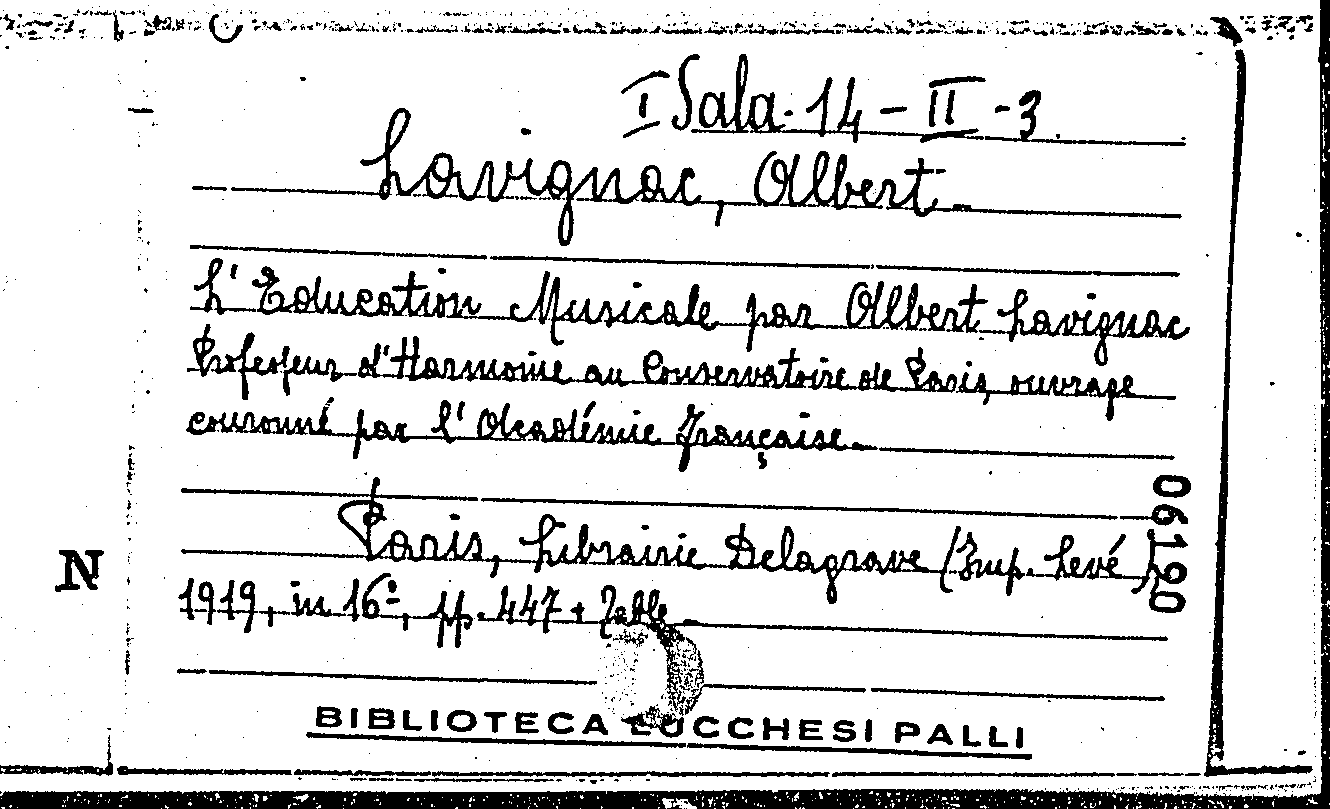 I Sala. 14 - II - 3.
Lavignac, Albert -
L'Education Musicale par Albert Lavignac
Professeur d'Harmonie au Conservatoire de Paris, ouvrage
couronné par l'Académie française. -
Paris, Librairie Delagrave (Imp. Levé),
1919, in 16º, pp. 447 + Table -
N
06190
BIBLIOTECA LUCCHESI PALLI